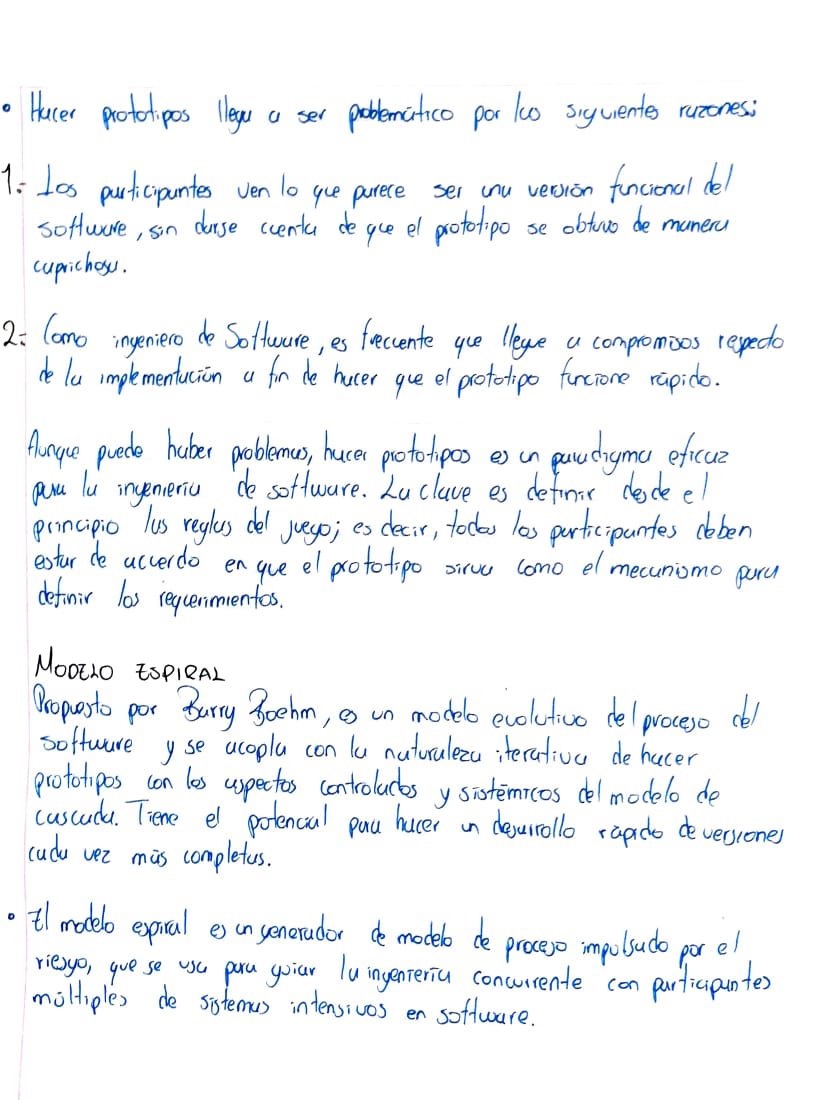 • Hacer prototipos llega a ser problemático por las siguientes razones:
1.- Los participantes ven lo que parece ser una versión funcional del
software, sin darse cuenta de que el prototipo se obtuvo de manera
caprichosa.
2.- Como ingeniero de Software, es frecuente que llegue a compromisos respecto
de la implementación a fin de hacer que el prototipo funcione rápido.
Aunque puede haber problemas, hacer prototipos es un paradigma eficaz
para la ingeniería de software. La clave es definir desde el
principio las reglas del juego; es decir, todos los participantes deben
estar de acuerdo en que el prototipo sirva como el mecanismo para
definir los requerimientos.
MODELO ESPIRAL
Propuesto por Barry Boehm, es un modelo evolutivo del proceso del
software y se acopla con la naturaleza iterativa de hacer
prototipos con los aspectos controlados y sistémicos del modelo de
cascada. Tiene el potencial para hacer un desarrollo rápido de versiones
cada vez más completas.
• El modelo espiral es un generador de modelo de proceso impulsado por el
riesgo, que se usa para guiar la ingeniería concurrente con participantes
múltiples de sistemas intensivos en software.